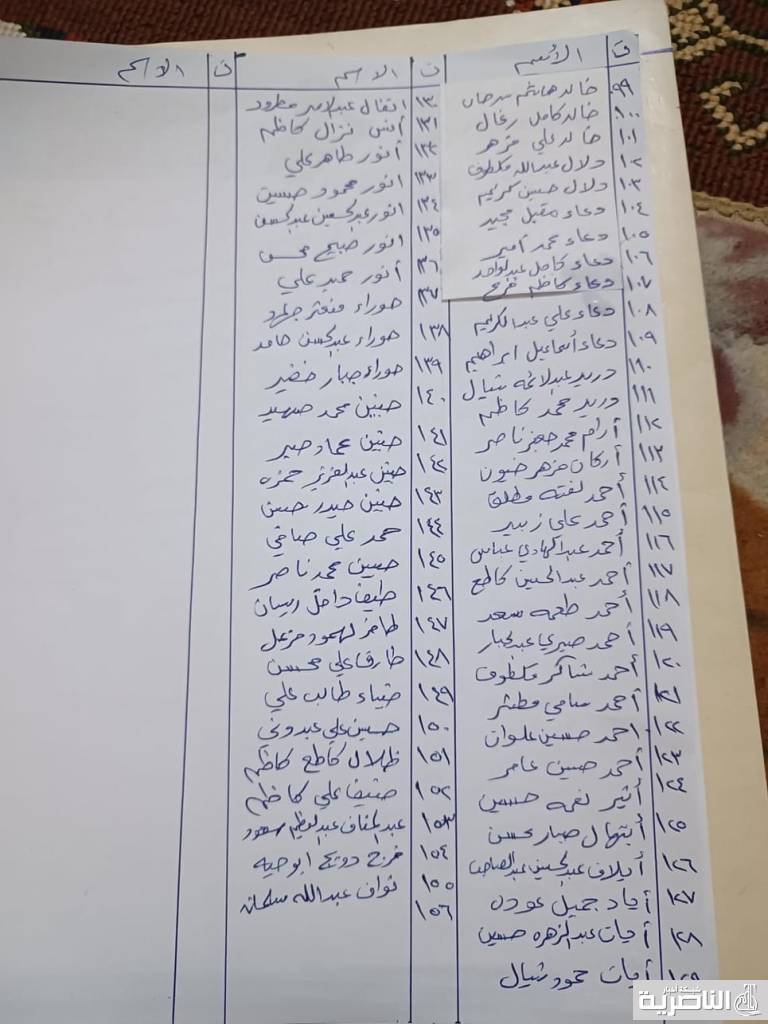 ت الاسم
٩٩ خالد هاشم سرحان
١٠٠ خالد كامل زغال
١٠١ خالد علي مزهر
١٠٢ دلال عبدالله مكطوف
١٠٣ دلال حسين كريم
١٠٤ دعاء مقبل مجيد
١٠٥ دعاء محمد أمير
١٠٦ دعاء كامل عبدالواحد
١٠٧ دعاء كاظم فرج
١٠٨ دعاء علي عبدالكريم
١٠٩ دعاء أسماعيل ابراهيم
١١٠ دريد عبدالائمه شيال
١١١ دريد محمد كاظم
١١٢ أرام محمد جعفر ناصر
١١٣ أركان مزهر ضيون
١١٤ أحمد لفته مطلق
١١٥ أحمد علي زبير
١١٦ أحمد عبدالهادي عباس
١١٧ أحمد عبدالحسين كاطع
١١٨ أحمد طعمه سعد
١١٩ أحمد صبري عبدالجبار
١٢٠ أحمد شاكر مكطوف
١٢١ أحمد سامي مطشر
١٢٢ أحمد حسين علوان
١٢٣ أحمد حسين عامر
١٢٤ أثير نعمه حسين
١٢٥ أبتهال صبار محسن
١٢٦ أيلاف عبدالحسين عبدالصاحب
١٢٧ أياد جميل عوده
١٢٨ أيات عبدالزهره حسين
١٢٩ أيات حمود شيال
ت الاسم
١٣٠ انفال عبدالامير مطرود
١٣١ أنس نزال كاظم
١٣٢ أنور طاهر علي
١٣٣ انور محمود حسين
١٣٤ انور عبدالحسين عبدالحسن
١٣٥ انور صبيح محسن
١٣٦ أنور حميد علي
١٣٧ حوراء منعثر
١٣٨ حوراء عبدالحسن حامد
١٣٩ حوراء جبار خضير
١٤٠ حنين محمد
١٤١ حنين عماد جبر
١٤٢ حنين عبدالعزيز حمزه
١٤٣ حنين حيدر حسين
١٤٤ حمد علي صافي
١٤٥ حسين محمد ناصر
١٤٦ طيف داخل رسان
١٤٧ لهمود مزعل
١٤٨ طارق علي محسن
١٤٩ ضياء طالب علي
١٥٠ حسين علي عبدوني
١٥١ ظلال كاطع كاظم
١٥٢ ضيف علي كاظم
١٥٣ عبدالمناف عبدالعظيم سعود
١٥٤ فرج دويج ابوحيه
١٥٥ نواف عبدالله سلمان
١٥٦
ت الاسم
شبكة أخبار
الناصرية